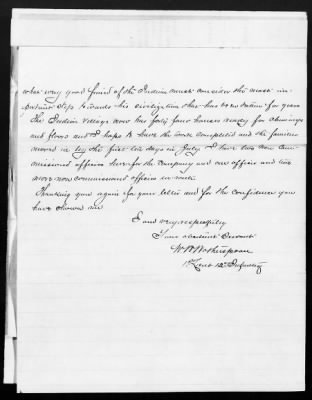 what every good friend of the Indian must consider the most im-
portant step towards his civilization that has been taken for years
The Indian Village now has forty four houses ready for chimneys
and floors and I hope to have the work completed and the families
moved in by the first ten days in July. I have two non Com-
missioned officers here for the Company and one officer and two
more non commissioned officers en route.
Thanking you again for your letter and for the confidence you
have shown me
I am very respectfully
Your obedient Servant
Wm W Wotherspoon
1st Lieut 12th Infantry